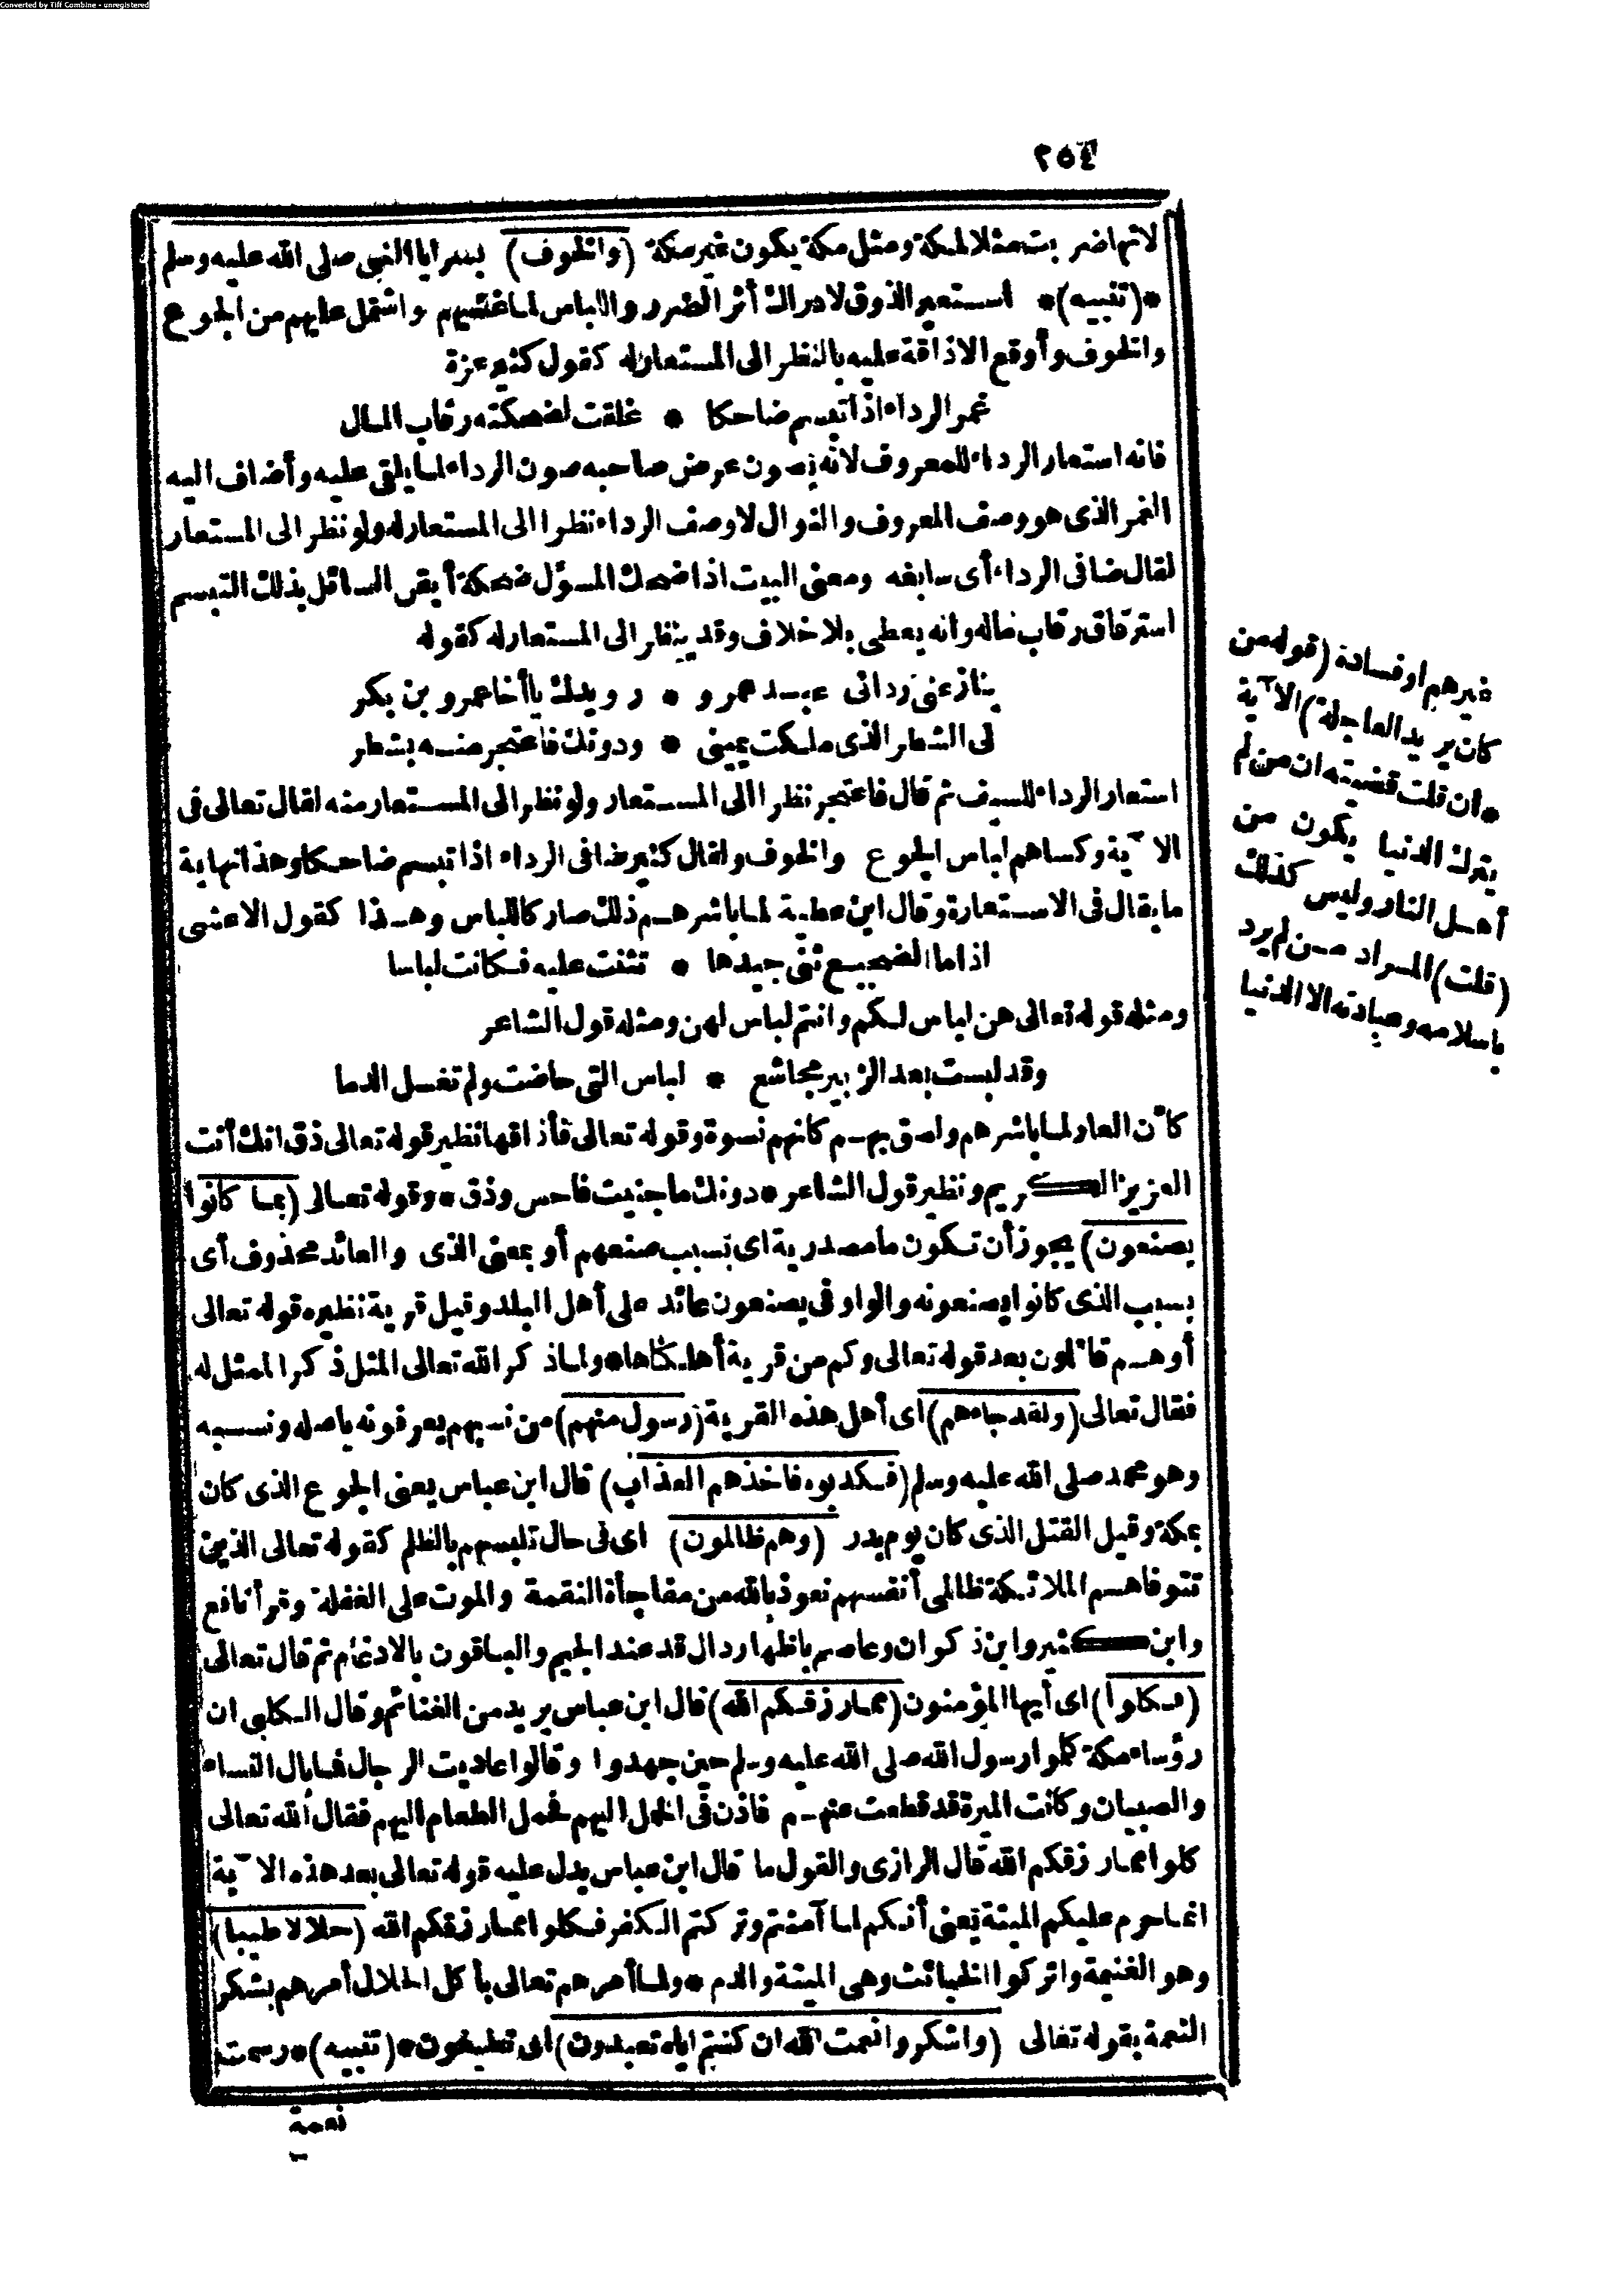 Converted by Tiff Combine - unregistered
٢٥٤
لانها ضربت مثلا لمكة ومثل مكة يكون غير مكة (والخوف) بسرايا النبي صلى الله عليه وسلم
*(تنبيه)* استعير الذوق لادراك أثر الضرر واللباس لما غشيهم واشتمل عليهم من الجوع
والخوف وأوقع الاذاقة عليه بالنظر الى المستعار له كقول كثير عزة
غمر الرداء اذا تبسم ضاحكا * غلقت لضحكته رقاب المال
فانه استعار الرداء للمعروف لانه يصون عرض صاحبه صون الرداء لما يلقى عليه وأضاف اليه
الغمر الذى هو وصف المعروف والنوال لا وصف الرداء نظرا الى المستعار له ولو نظر الى المستعار
لقال ضافى الرداء أى سابغه ومعنى البيت اذا ضحك المسؤل ضحكة أيقن السائل بذلك التبسم
استرقاق رقاب ماله وانه يعطى بلا خلاف وقد ينظر الى المستعار له كقوله
ينازعنى ردائى عبد عمرو * رويدك يا أخا عمرو بن بكر
لى الشطر الذى ملكت يمينى * ودونك فاعتجر منه بشطر
استعار الرداء للسيف ثم قال فاعتجر نظرا الى المستعار ولو نظر الى المستعار منه لقال تعالى فى
الآية وكساهم لباس الجوع والخوف ولقال كثير ضافى الرداء اذا تبسم ضاحكا وهذا نهاية
ما يقال فى الاستعارة وقال ابن عطية لما باشرهم ذلك صار كاللباس وهذا كقول الاعشى
اذا ما الضجيع ثنى جيدها * تثنت عليه فكانت لباسا
ومثله قوله تعالى هن لباس لكم وانتم لباس لهن ومثله قول الشاعر
وقد لبست بعد الزبير مجاشع * لباس التى حاضت ولم تغسل الدما
كأن العار لما باشرهم ولصق بهم كانهم نسوة وقوله تعالى فأذاقها نظير قوله تعالى ذق انك أنت
العزيز الكريم ونظير قول الشاعر * دونك ما جنيت فاحس وذق * وقوله تعالى (بما كانوا
يصنعون) يجوز أن تكون ما مصدرية اى بسبب صنعهم أو بمعنى الذى والعائد محذوف أى
بسبب الذى كانوا يصنعونه والواو فى يصنعون عائد على أهل البلد وقيل قرية نظيره قوله تعالى
أو هم قائلون بعد قوله تعالى وكم من قرية أهلكناها * ولما ذكر الله تعالى المثل ذكر الممثل له
فقال تعالى (ولقد جاءهم) اى أهل هذه القرية (رسول منهم) من نسبهم يعرفونه باصله ونسبه
وهو محمد صلى الله عليه وسلم (فكذبوه فاخذهم العذاب) قال ابن عباس يعنى الجوع الذى كان
بمكة وقيل القتل الذى كان يوم بدر (وهم ظالمون) اى فى حال تلبسهم بالظلم كقوله تعالى الذين
تتوفاهم الملائكة ظالمى أنفسهم نعوذ بالله من مفاجأة النقمة والموت على الغفلة وقرأ نافع
وابن كثير وابن ذكوان وعاصم باظهار دال قد عند الجيم والباقون بالادغام ثم قال تعالى
(فكلوا) اى أيها المؤمنون (مما رزقكم الله) قال ابن عباس يريد من الغنائم وقال الكلبى ان
رؤساء مكة كلموا رسول الله صلى الله عليه وسلم حين جهدوا وقالوا عاديت الرجال فما بال النساء
والصبيان وكانت الميرة قد قطعت عنهم فاذن فى الحمل اليهم فحمل الطعام اليهم فقال الله تعالى
كلوا مما رزقكم الله قال الرازى والقول ما قال ابن عباس يدل عليه قوله تعالى بعد هذه الآية
انما حرم عليكم الميتة يعنى أنكم لما آمنتم وتركتم الكفر فكلوا مما رزقكم الله (حلالا طيبا)
وهو الغنيمة واتركوا الخبائث وهى الميتة والدم * ولما أمرهم تعالى بأكل الحلال أمرهم بشكر
النعمة بقوله تعالى (واشكروا نعمت الله ان كنتم اياه تعبدون) اى تطيعون * (تنبيه) * رسمت
نعمة
غيرهم او فسادة (قوله من
كان يريد العاجلة) الآية
* ان قلت قضيته ان من لم
يترك الدنيا يكون من
أهل النار وليس كذلك
(قلت) المراد من لم يرد
باسلامه وعبادته الا الدنيا